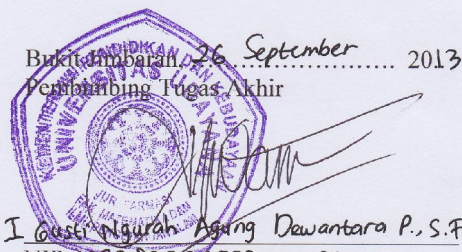 Bukit Jimbaran, 26 September 2013
Pembimbing Tugas Akhir
KEMENTERIAN PENDIDIKAN DAN KEBUDAYAAN
UNIVERSITAS UDAYANA
JUR FARMASI
I Gusti Ngurah Agung Dewantara P., S.F